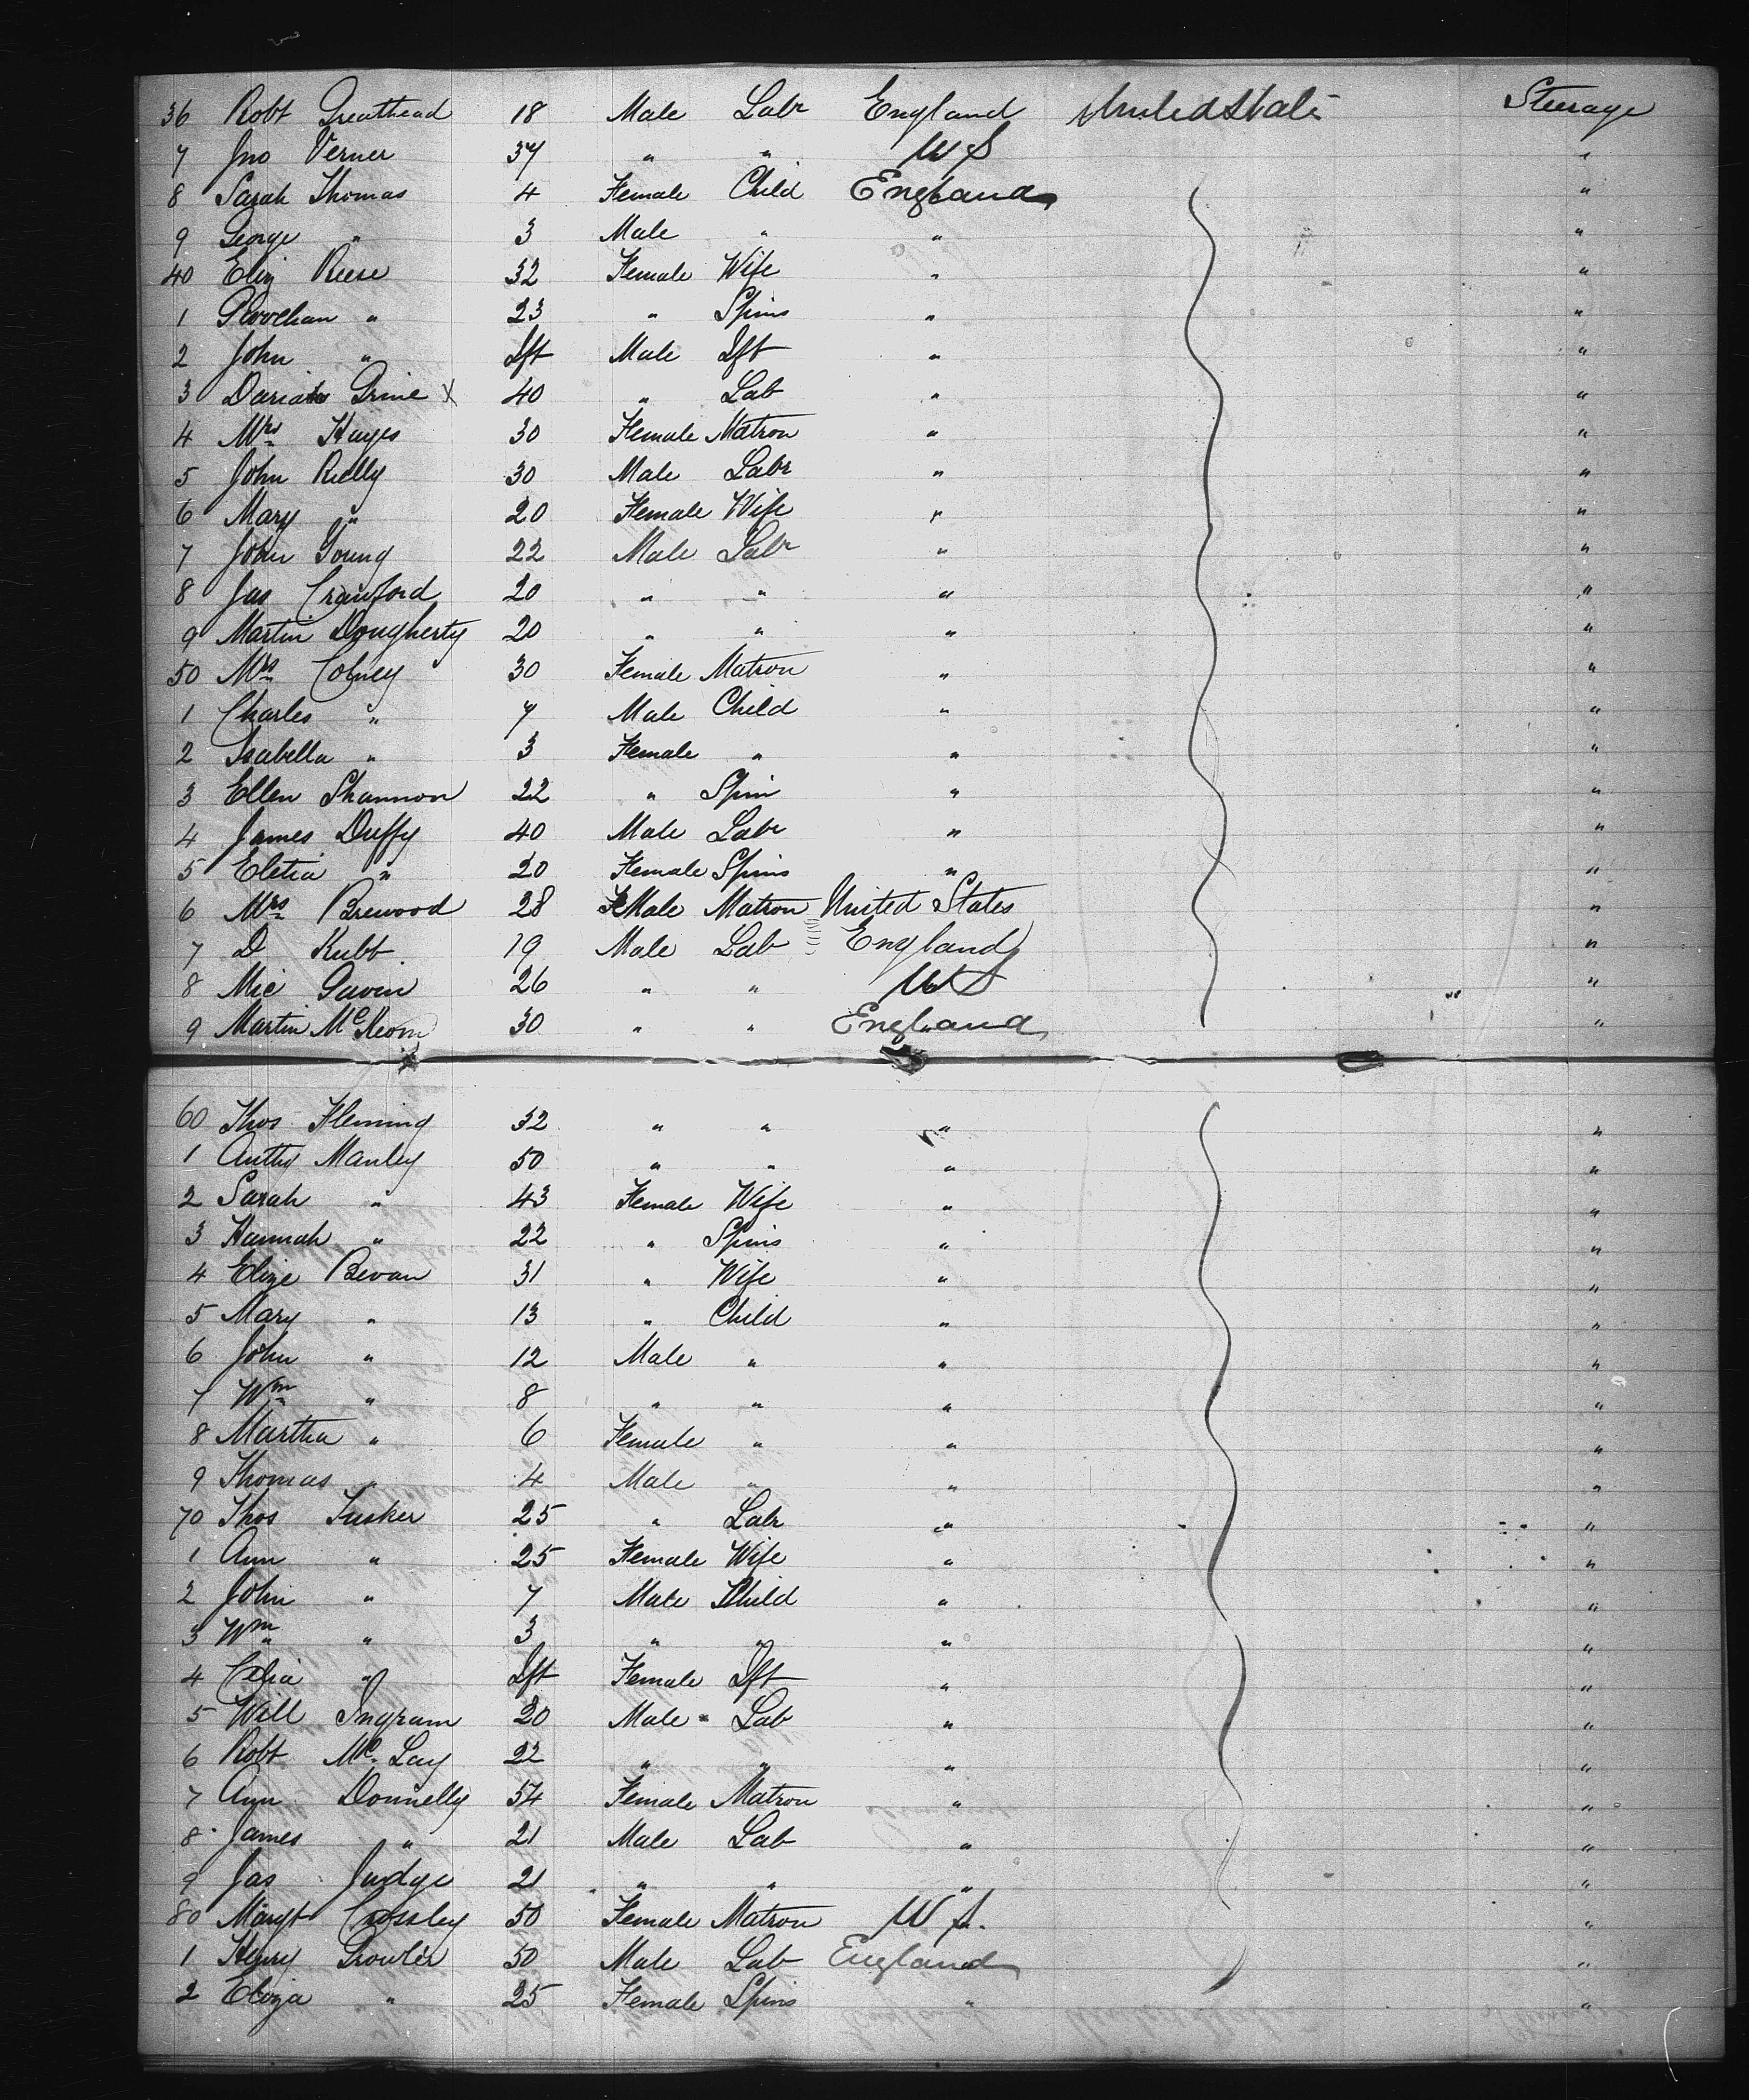 36 Robt Greathead 18 Male Labr England United States Steerage
7 Jno Verner 37 " " US "
8 Sarah Thomas 4 Female Child England "
9 George " 3 Male " " "
40 Eliz Reese 32 Female Wife " "
1 " 23 " Spins " "
2 John " Ift Male Ift " "
3 40 " Lab " "
4 Mrs Hayes 30 Female Matron " "
5 John Rielly 30 Male Labr " "
6 Mary " 20 Female Wife " "
7 John Young 22 Male Labr " "
8 Jas Crawford 20 " " " "
9 Martin Dougherty 20 " " " "
50 Mrs 30 Female Matron " "
1 Charles " 7 Male Child " "
2 Isabella " 3 Female " " "
3 Ellen Shannon 22 " Spin " "
4 James Duffy 40 Male Labr " "
5 Eletia " 20 Female Spins " "
6 Mrs Brewood 28 FeMale Matron United States "
7 D Kubt 19 Male Lab England "
8 Mic Gavin 26 " " US "
9 Martin McKeom 30 " " England "
60 Thos Fleming 32 " " " "
1 Anthy Manley 50 " " " "
2 Sarah " 43 Female Wife " "
3 Hannah " 22 " Spins " "
4 Elize Bevan 31 " Wife " "
5 Mary " 13 " Child " "
6 John " 12 Male " " "
7 Wm " 8 " " " "
8 Martha " 6 Female " " "
9 Thomas " 4 Male " " "
70 Thos Tusker 25 " Labr " "
1 Ann " 25 Female Wife " "
2 John " 7 Male Child " "
3 Wm " 3 " " " "
4 Celia " Ift Female Ift " "
5 Will Ingram 20 Male Lab " "
6 Robt McLay 22 " " " "
7 Ann Donnelly 54 Female Matron " "
8 James " 21 Male Lab " "
9 Jas Judge 21 " " " "
80 Margt Crossley 50 Female Matron US. "
1 Henry 50 Male Lab England "
2 Eliza " 25 Female Spins " "